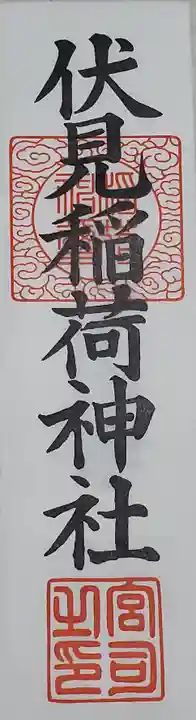 伏見稲荷神社
宮司之印